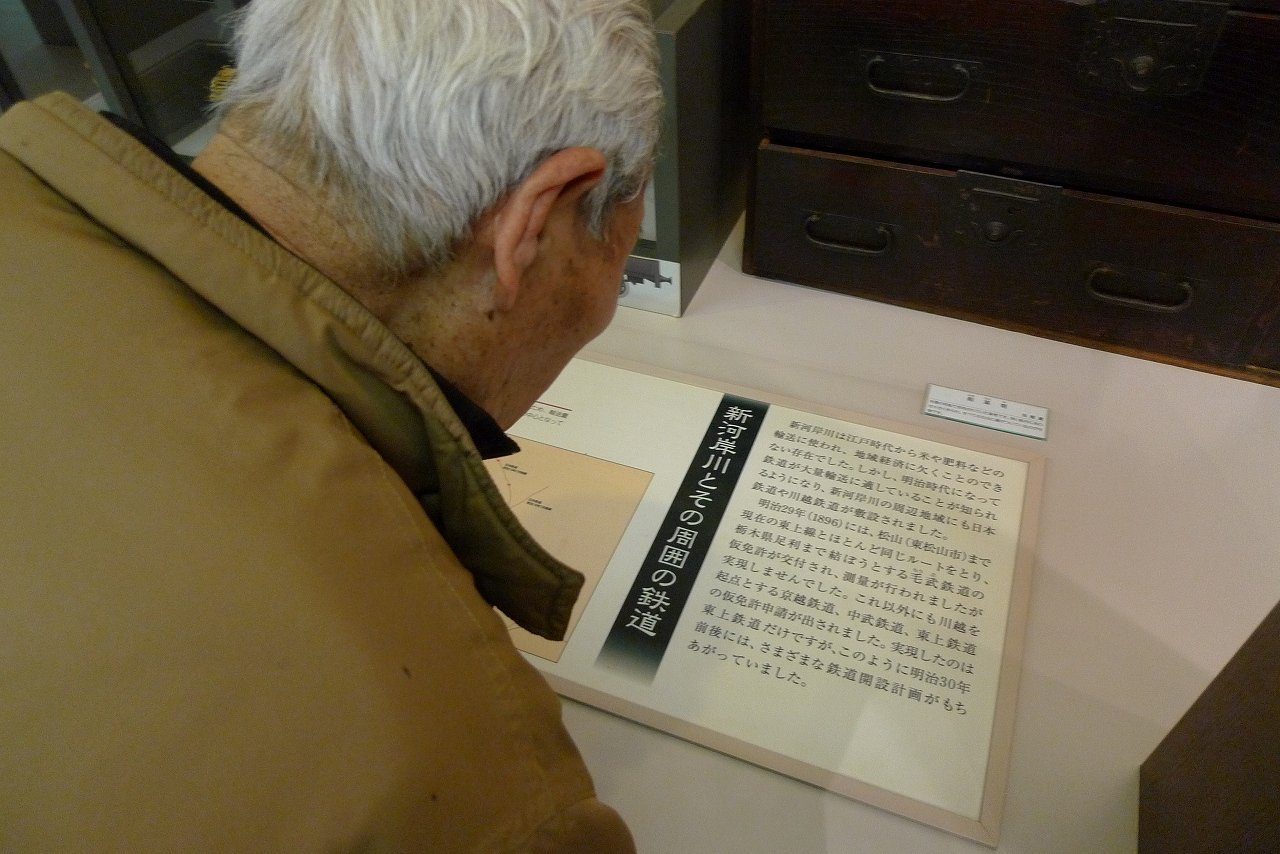 新河岸川とその周囲の鉄道
新河岸川は江戸時代から米や肥料などの
輸送に使われ、地域経済に欠くことのでき
ない存在でした。しかし、明治時代になって
鉄道が大量輸送に適していることが知られ
るようになり、新河岸川の周辺地域にも日本
鉄道や川越鉄道が敷設されました。
明治29年(1896)には、松山(東松山市)まで
現在の東上線とほとんど同じルートをとり、
栃木県足利まで結ぼうとする毛武鉄道の
仮免許が交付され、測量が行われましたが
実現しませんでした。これ以外にも川越を
起点とする京越鉄道、中武鉄道、東上鉄道
の仮免許申請が出されました。実現したのは
東上鉄道だけですが、このように明治30年
前後には、さまざまな鉄道開設計画がもち
あがっていました。
ため、輸送量
中心となって